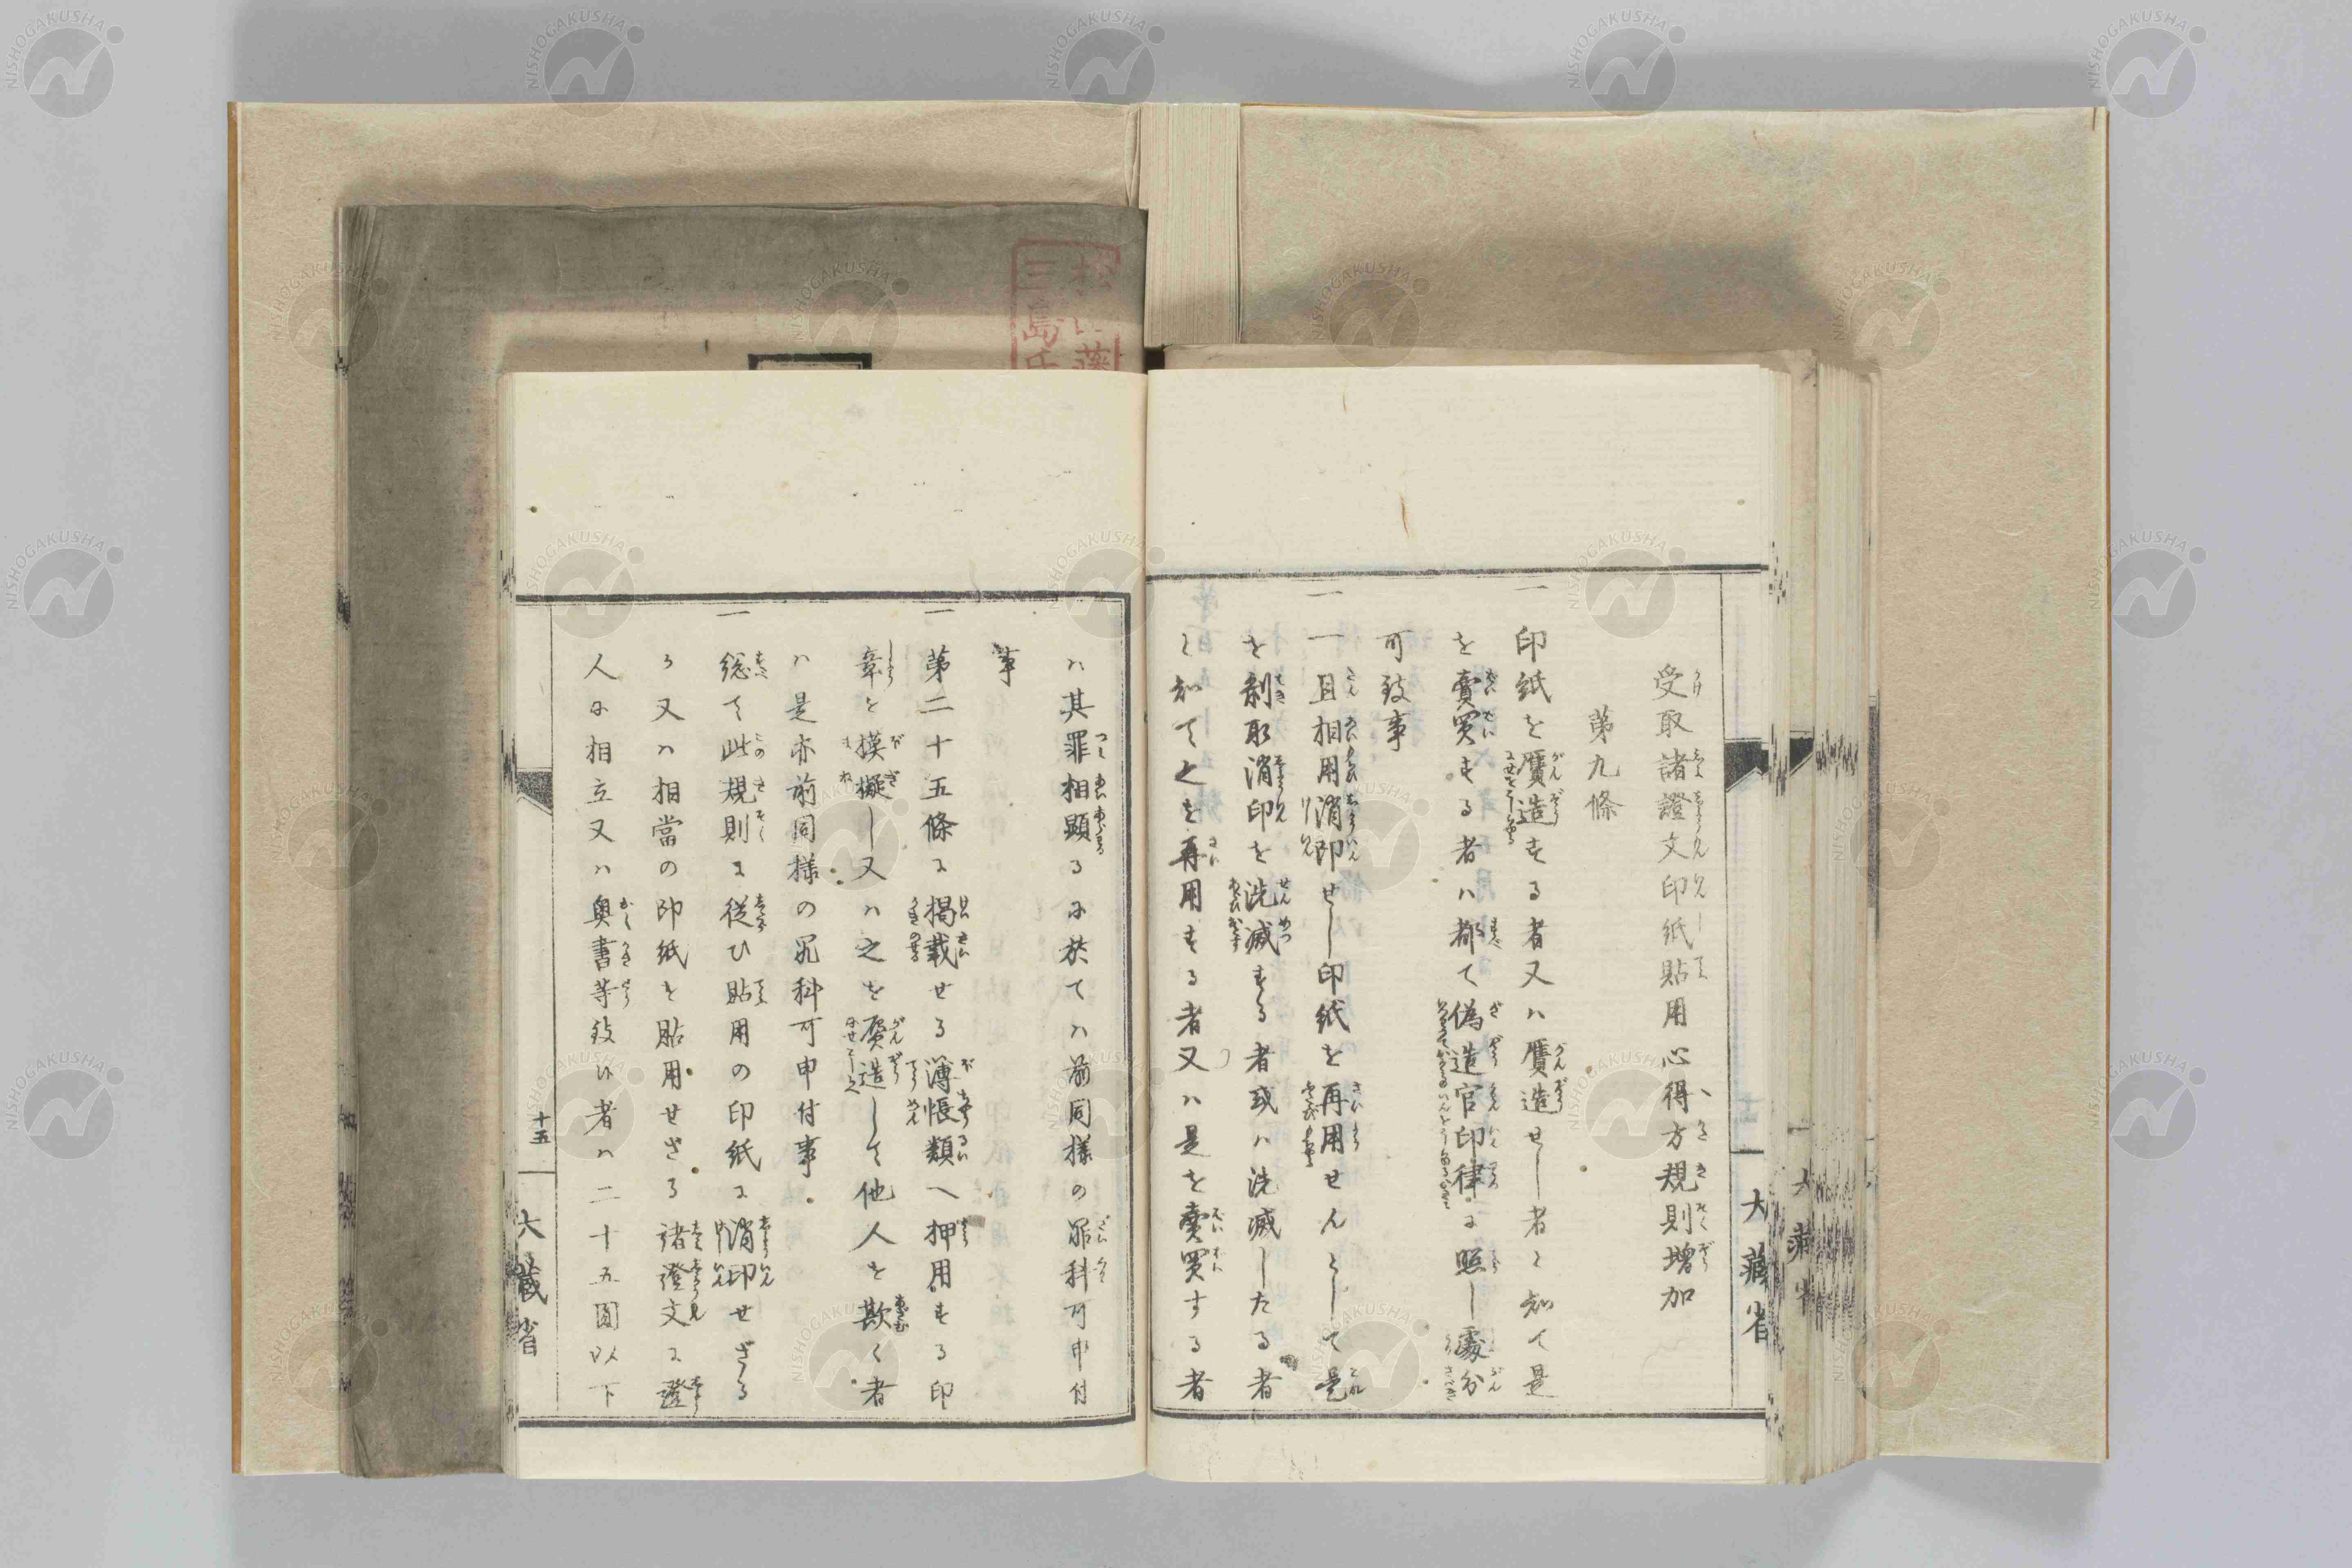 受取諸證文印紙貼用心得方規則增加
第九條
一 印紙を贋造する者又ハ贋造せし者と知て是
を賣買する者ハ都て偽造官印律に照し處分
可致事
一 一旦相用消印せし印紙を再用せんとして是
を剥取消印を洗滅する者或ハ洗滅したる者
と知て之を再用する者又ハ是を賣買する者
ハ其罪相顕るに於てハ前同様の罪科可申付
事
一 第二十五條に掲載せる簿帳類へ押用する印
章を摸擬し又ハ之を贋造して他人を欺く者
ハ是亦前同様の罪科可申付事
一 総て此規則に從ひ貼用の印紙に消印せざる
る又ハ相當の印紙を貼用せざる諸證文に證
人に相立又ハ奥書等致ひ者ハ二十五圓以下
十五
大蔵省
大藏省
三島氏
NISHOGAKUSHA